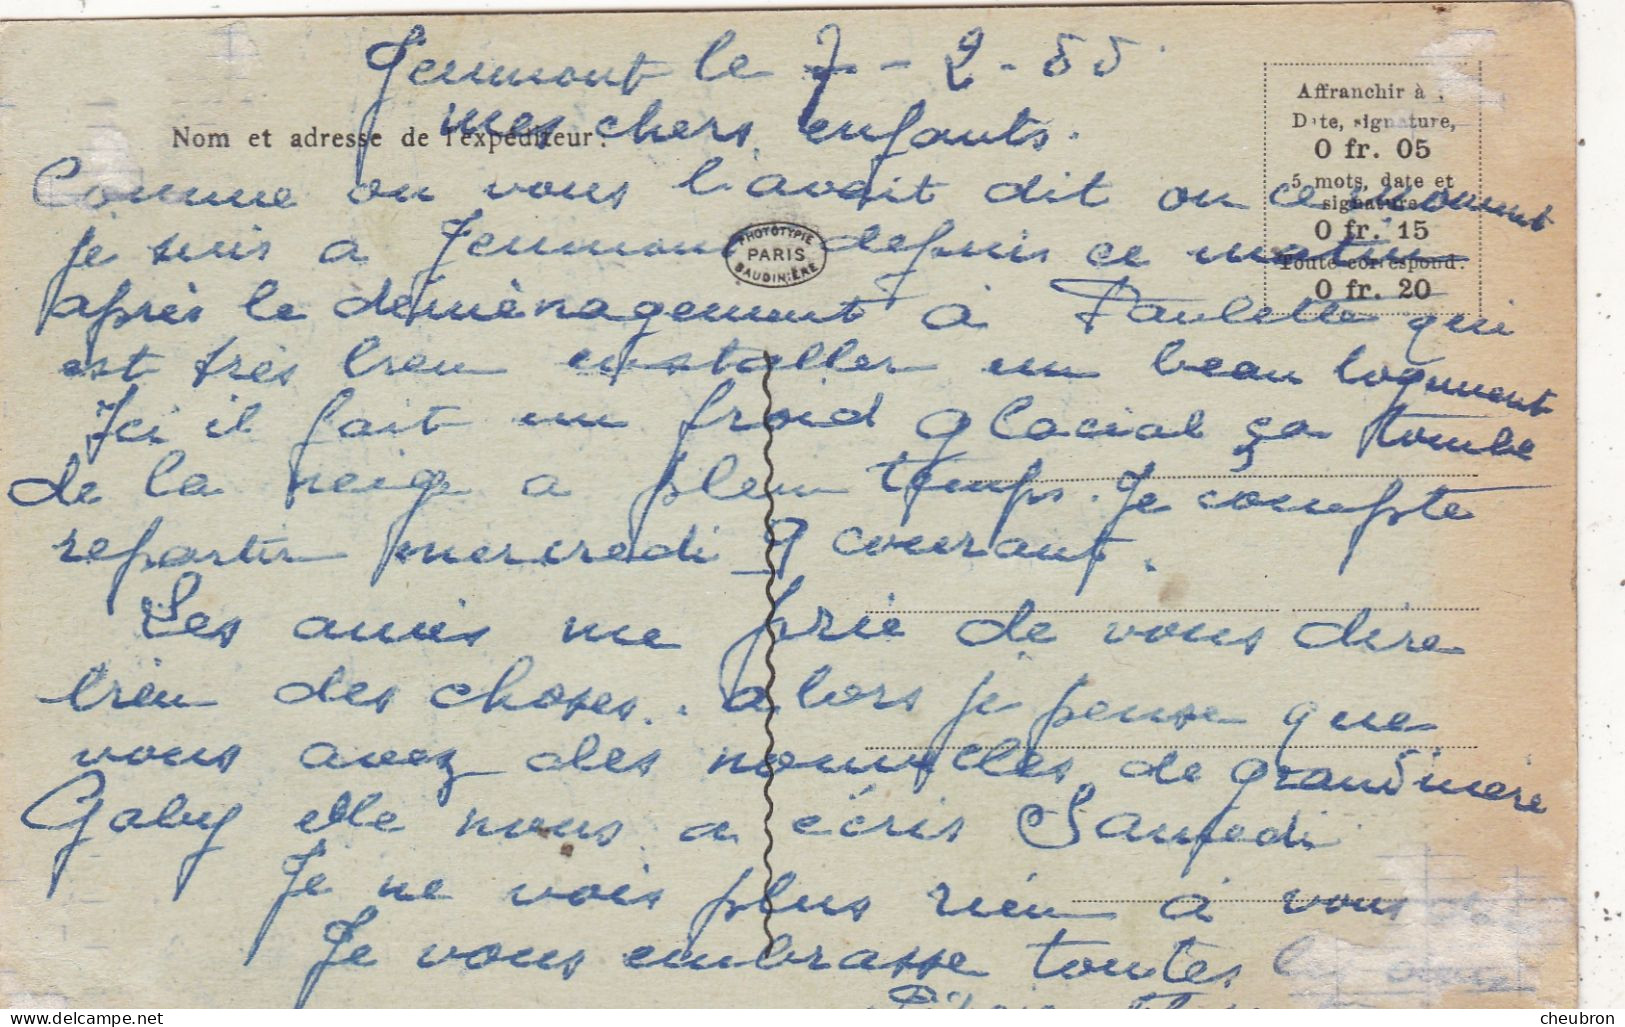 Jeumont le 7-2-55
mes chers enfants.
Nom et adresse de l'expéditeur:
Affranchir à
Date, signature,
0 fr. 05
5 mots, date et
signature
0 fr. 15
Toute correspond.
0 fr. 20
Comme on vous l'avait dit on ce moment
je suis a Jeumont depuis ce matin
PHOTOTYPIE
PARIS
BAUDINIÈRE
après le déménagement à Paulette qui
est très bien installer un beau logement
Ici il fait un froid glacial ça tombe
de la neige a plein temps. Je compte
repartir mercredi 9 courant.
Les amis me prie de vous dire
bien des choses.. alors je pense que
vous avez des nouvelles de grand mère
Gaby elle nous a écris Samedi
Je ne vois plus rien à vous
Je vous embrasse toutes
cheubron
www.delcampe.net